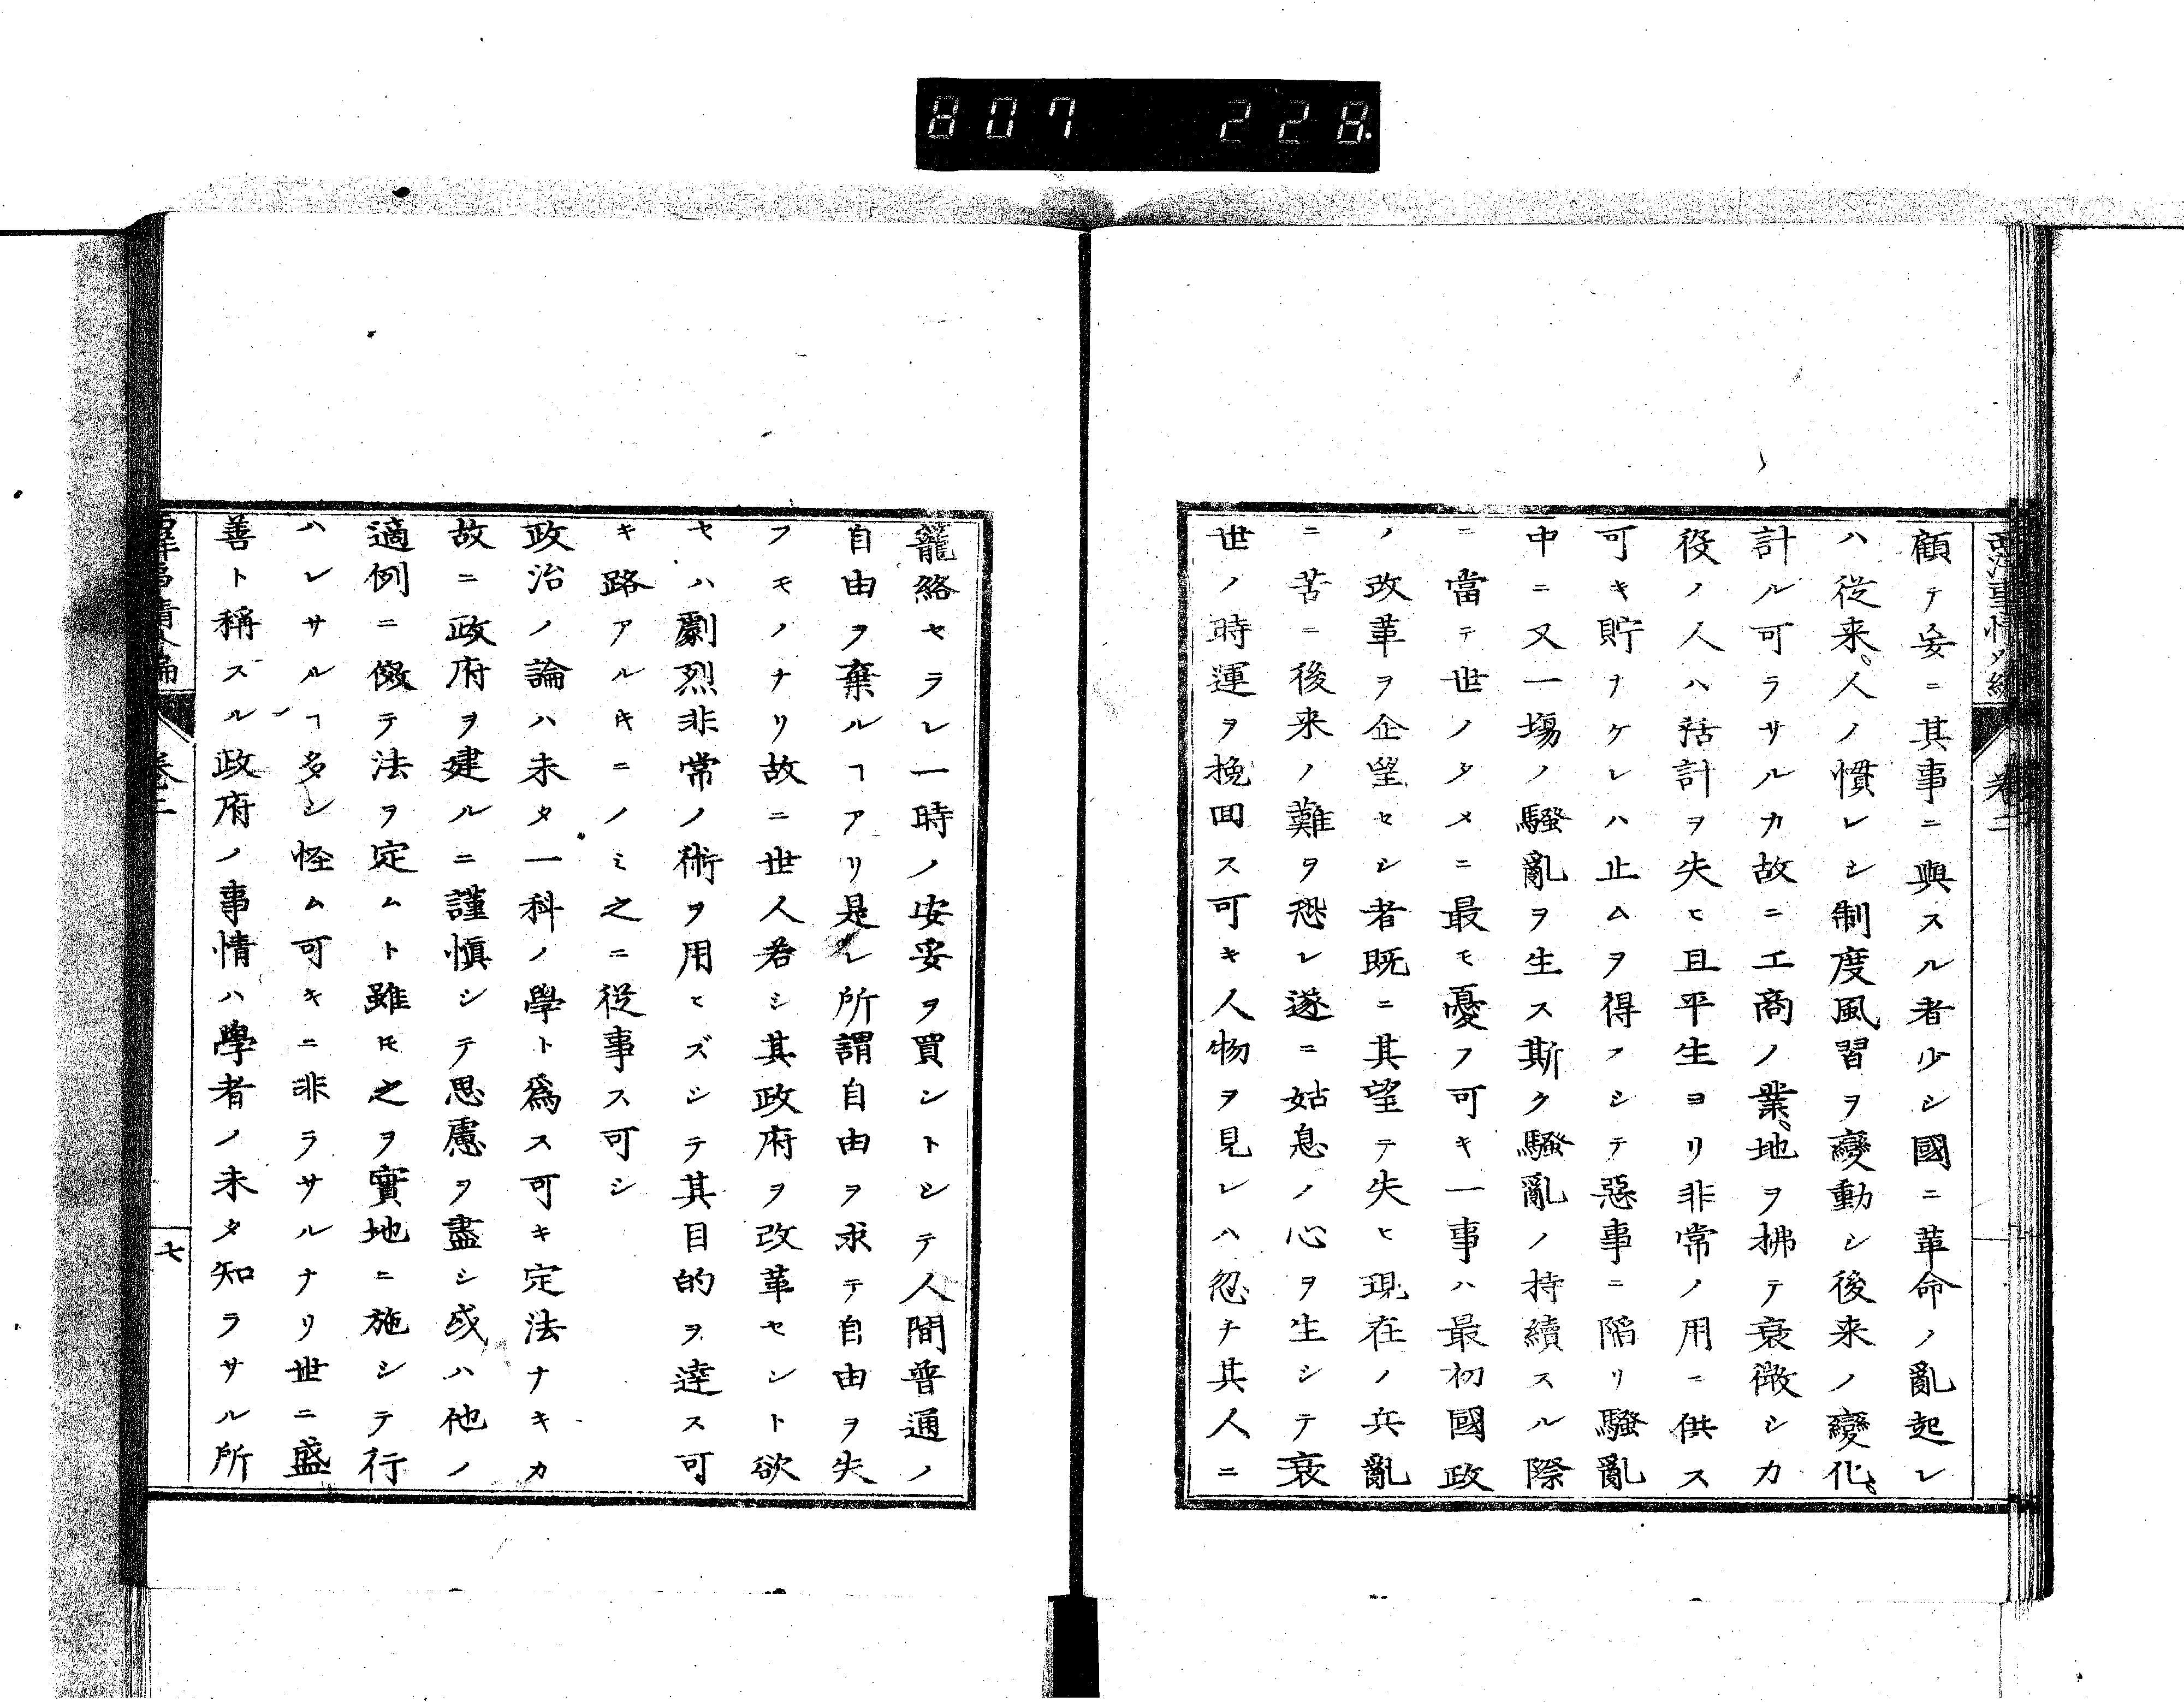 807 228
西洋事情外編 卷二
顧テ妄ニ其事ニ與スル者少シ國ニ革命ノ亂起レ
ハ從来、人ノ慣レシ制度風習ヲ變動シ後来ノ變化、
計ル可ラサルカ故ニ工商ノ業、地ヲ拂テ衰微シカ
役ノ人ハ活計ヲ失ヒ且平生ヨリ非常ノ用ニ供ス
可キ貯ナケレハ止ムヲ得フシテ惡事ニ陷リ騷亂
中ニ又一塲ノ騷亂ヲ生ス斯ク騷亂ノ持續スル際
ニ當テ世ノタメニ最モ憂フ可キ一事ハ最初國政
ノ改革ヲ企望セシ者既ニ其望テ失ヒ現在ノ兵亂
ニ苦ニ後来ノ難ヲ恐レ遂ニ姑息ノ心ヲ生シテ衰
世ノ時運ヲ挽回ス可キ人物ヲ見レハ忽チ其人ニ
籠絡セラレ一時ノ安妥ヲ買ントシテ人間普通ノ
自由ヲ棄ルヿアリ是レ所謂自由ヲ求テ自由ヲ失
フモノナリ故ニ世人若シ其政府ヲ改革セント欲
セハ劇烈非常ノ術ヲ用ヒズシテ其目的ヲ達ス可
キ路アルキニノミ之ニ從事ス可シ
政治ノ論ハ未タ一科ノ學ト爲ス可キ定法ナキカ
故ニ政府ヲ建ルニ謹愼シテ思慮ヲ盡シ或ハ他ノ
適例ニ傚テ法ヲ定ムト雖モ之ヲ實地ニ施シテ行
ハレサルヿ多シ怪ム可キニ非ラサルナリ世ニ盛
善ト稱スル政府ノ事情ハ學者ノ未タ知ラサル所
卷二
七